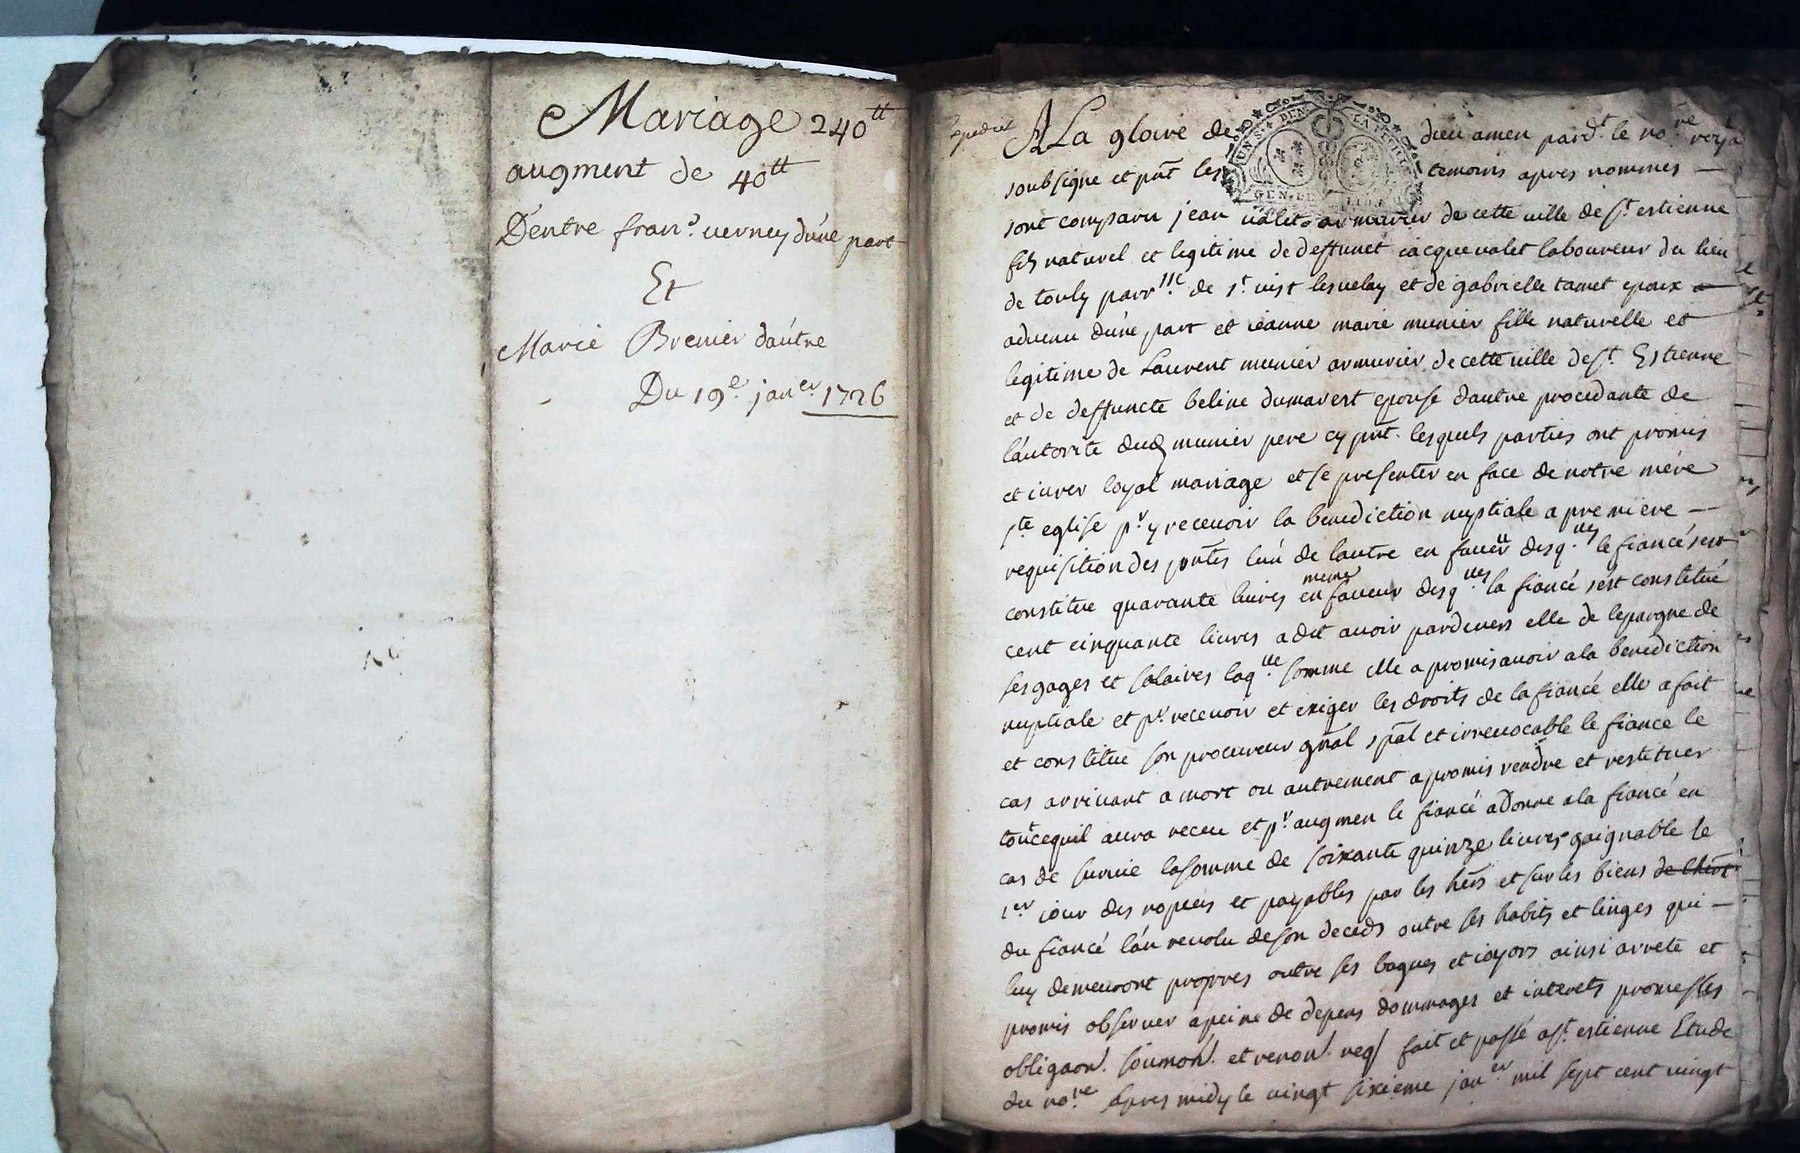 Mariage 240tt
augment de 40tt
D'entre fran.s verney d'une part
Et
Marie Brenier d'autre
Du 19.e jan.er 1726
expedié
A La gloire de dieu amen pard.t le no.re royal
soubsigne et pnt les temoins apres nommes
sont comparu jean valet armurier de cette ville de st estienne
fils naturel et legitime de deffunct jacque valet laboureur du lieu
de touly parr.lle de s.t just lesvelay et de gabrielle tamet
advenu d'une part et jeanne marie munier fille naturelle et
legitime de Laurent munier armurier de cette ville de st Estienne
et de deffuncte beline dumarest epouse d'autre procedante de
l'autorite dud munier pere cy pnt. lesquels parties ont promis
et jurer loyal mariage et se presenter en face de notre mére
ste eglise p.r y recevoir la benediction nuptiale a premiere
requisition des pntes lun de lautre en faveur desq.lles le fiancé sest
constitue quarante livres en meme faveur desq.lles la fiancé sést constitué
cent cinquante livres a dit avoir pardevers elle de lepargne de
ses gages et salaires laq.lle somme elle a promis avoir a la benediction
nuptiale et p.r recevoir et exiger les droits de la fiancé elle a fait
et constitue son procureur gnal spal et irrevocable le fiance le
cas arrivant a mort ou autrement a promis rendre et restituer
tout ce quil aura receu et p.r augmen le fiancé a donne a la fiancé en
cas de survie la somme de soixante quinze livres gaignable le
1.er jour des nopces et payables par les hers et sur les biens de lheri
du fiancé l'an revolu de son deceds outre ses habits et linges qui
luy demeuront propres outre ses bagues et joyaux ainsi arrete et
promis observer a peine de depens dommages et interets promesses
obligaon. soumon. et renon. reqs fait et passé a st estienne Etude
du no.re apres midy le vingt sixieme jan.er mil sept cent vingt